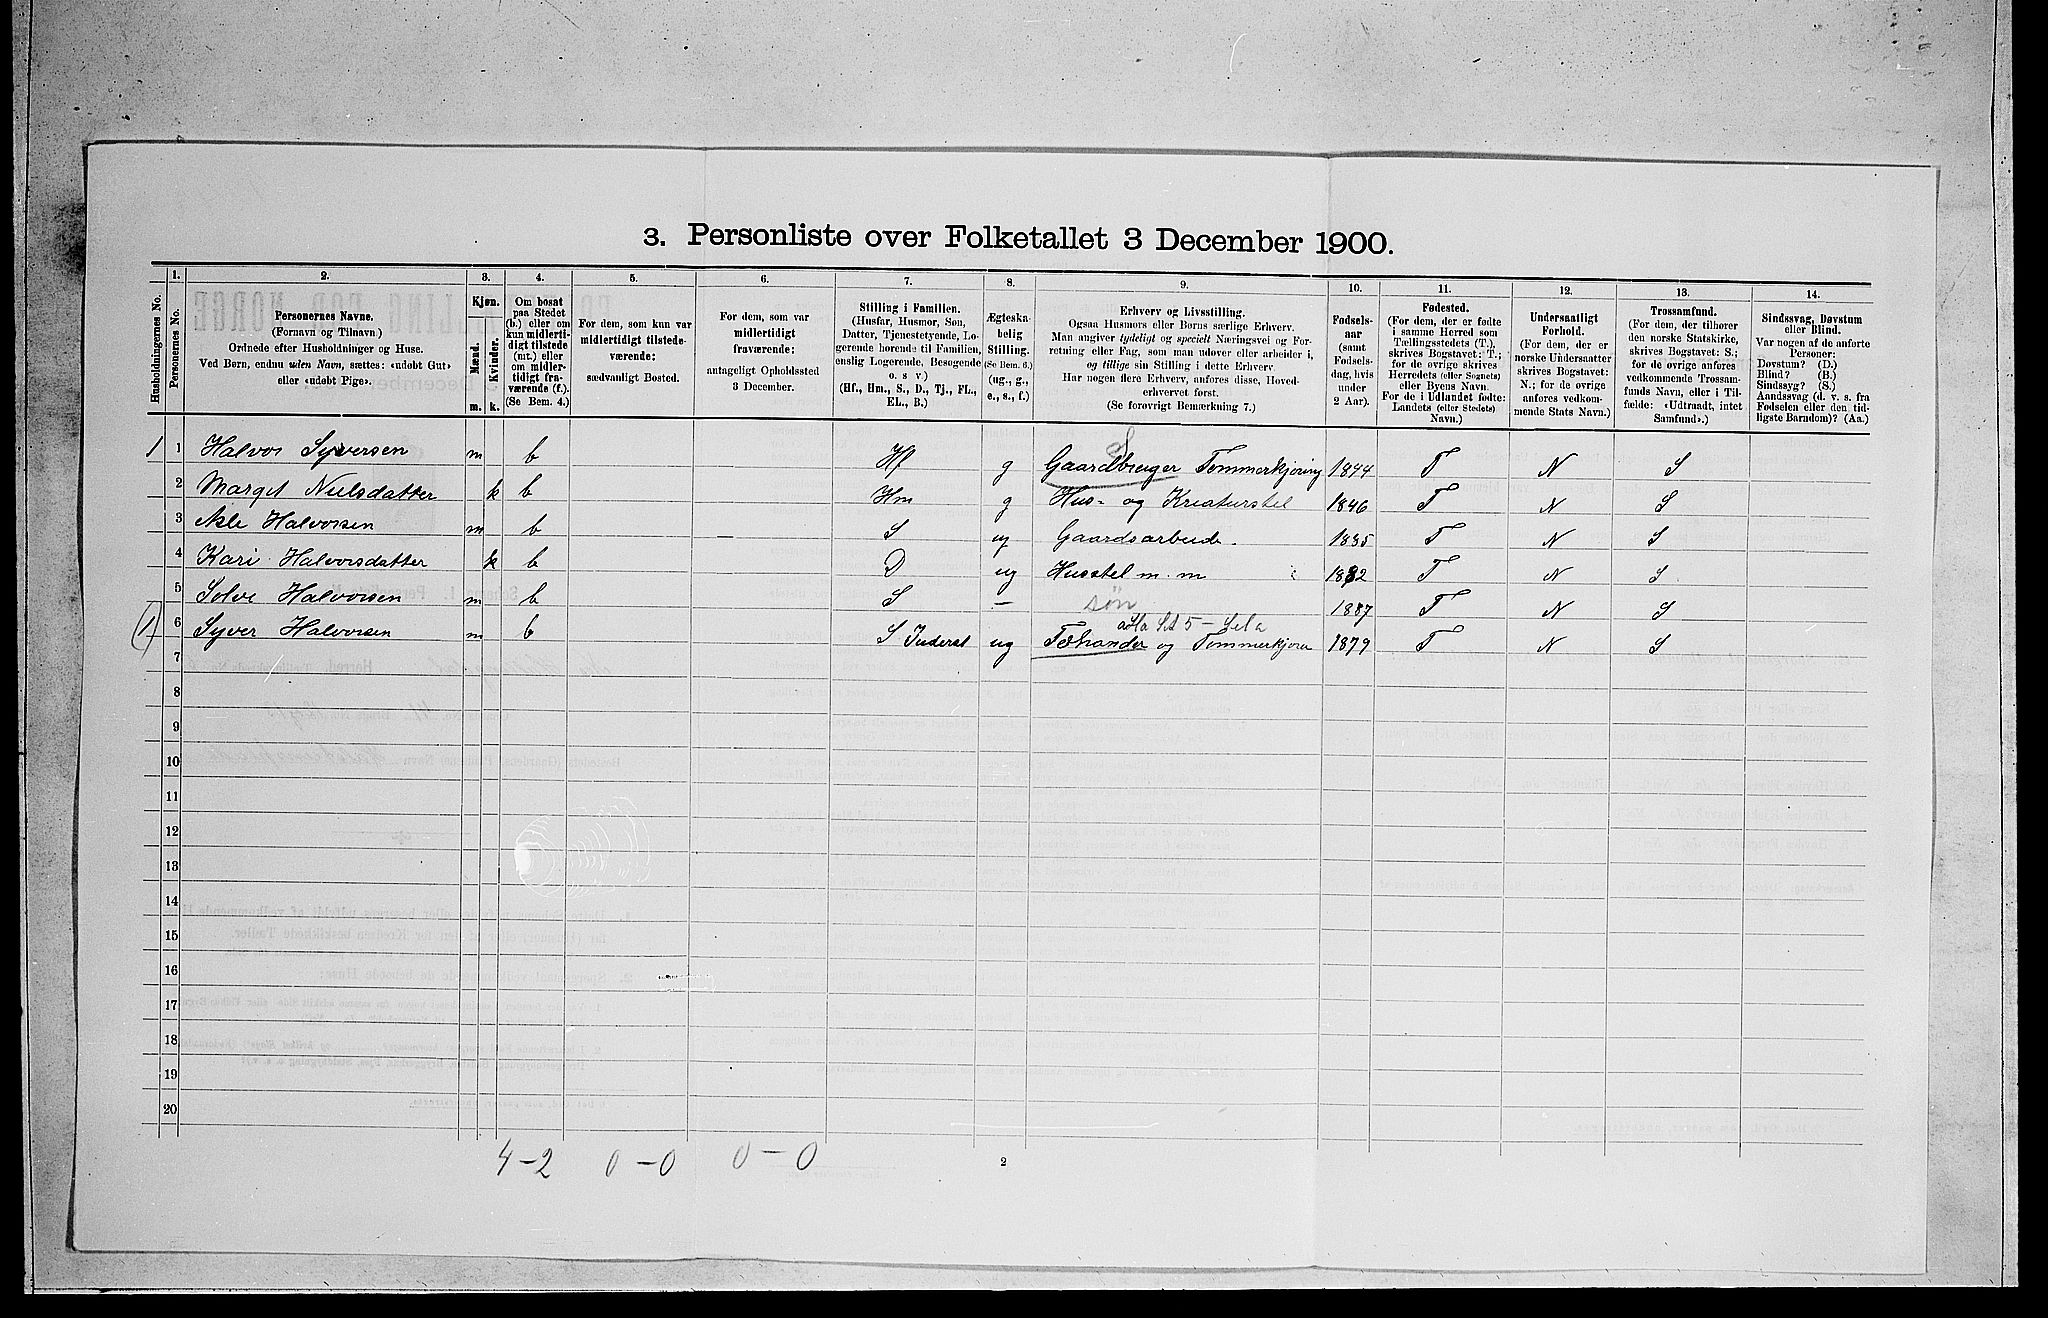 3. Personliste over Folketallet 3 December 1900.
1. 2. 3. 4. 5. 6. 7. 8. 9. 10. 11. 12. 13. 14.
Husholdningernes No.
Personernes No.
Personernes Navne.
(Fornavn og Tilnavn)
Ordnede efter Husholdninger og Huse.
Ved Børn, endnu uden Navn, sættes: «udøbt Gut»
eller «udøbt Pige».
Kjøn.
Mænd. Kvinder.
m. k.
Om bosat
paa Stedet
(b.) eller om
kun midlerti-
digt tilstede
(mt.) eller
om midler-
tidigt fra-
værende (f.).
(Se Bem. 4.)
For dem, som kun var
midlertidigt tilstede-
værende:
sædvanligt Bosted.
For dem, som var
midlertidigt
fraværende:
antageligt Opholdssted
3 December.
Stilling i Familien.
(Husfar, Husmor, Søn,
Datter, Tjenestetyende, Lo-
gerende hørende til Familien,
enslig Logerende, Besøgende
o. s v.)
(Hf., Hm., S., D., Tj., FL.,
EL., B.)
Ægteska-
belig
Stilling.
(Se Bem. 6.)
(ug., g.,
e., s., f.)
Erhverv og Livsstilling.
Ogsaa Husmors eller Børns særlige Erhverv.
Man angiver tydeligt og specielt Næringsvei og For-
retning eller Fag, som man udøver eller arbeider i,
og tillige sin Stilling i dette Erhverv.
Har nogen flere Erhverv, anføres disse, Hoved-
erhvervet først.
(Se forøvrigt Bemærkning 7.)
Fødsels-
aar
(samt
Fødsels-
dag, hvis
under
2 Aar).
Fødested.
(For dem, der er fødte
i samme Herred som
Tællingsstedets (T.),
skrives Bogstavet: T.;
for de øvrige skrives
Herredets (eller Sognets)
eller Byens Navn.
For de i Udlandet fødte:
Landets (eller Stedets)
Navn.)
Undersaatligt
Forhold.
(For dem, der er
norske Undersaatter
skrives Bogstavet:
N.; for de øvrige
anføres vedkom-
mende Stats Navn.)
Trossamfund.
(For dem, der tilhører
den norske Statskirke,
skrives Bogstavet: S.;
for de øvrige anføres
vedkommende Trossam-
funds Navn, eller i Til-
fælde: «Udtraadt, intet
Samfund».)
Sindssvag, Døvstum
eller Blind.
Var nogen af de anførte
Personer:
Døvstum? (D.)
Blind? (B.)
Sindssyg? (S.)
Aandssvag (d. v. s. fra
Fødselen eller den tid-
ligste Barndom)? (Aa.)
S
1 1 Halvor Syversen m b Hf g Gaardbruger Tømmerkjøring 1844 T N S
2 Margit Nielsdatter k b Hm g Hus- og Kreaturstel 1846 T N S
3 Asle Halvorsen m b S ug Gaardsarbeide. 1885 T N S
4 Kari Halvorsdatter k b D ug Husstel m. m 1882 T N S
5 Solve Halvorsen m b S – søn 1887 T N S
(1) 6 Syver Halvorsen m b S Inderst ug Fæhandler og Tømmerkjører 1879 T N S
7
8
9
10
11
12
13
14
15
16
17
18
19
20
4–2 0–0 0–0
2